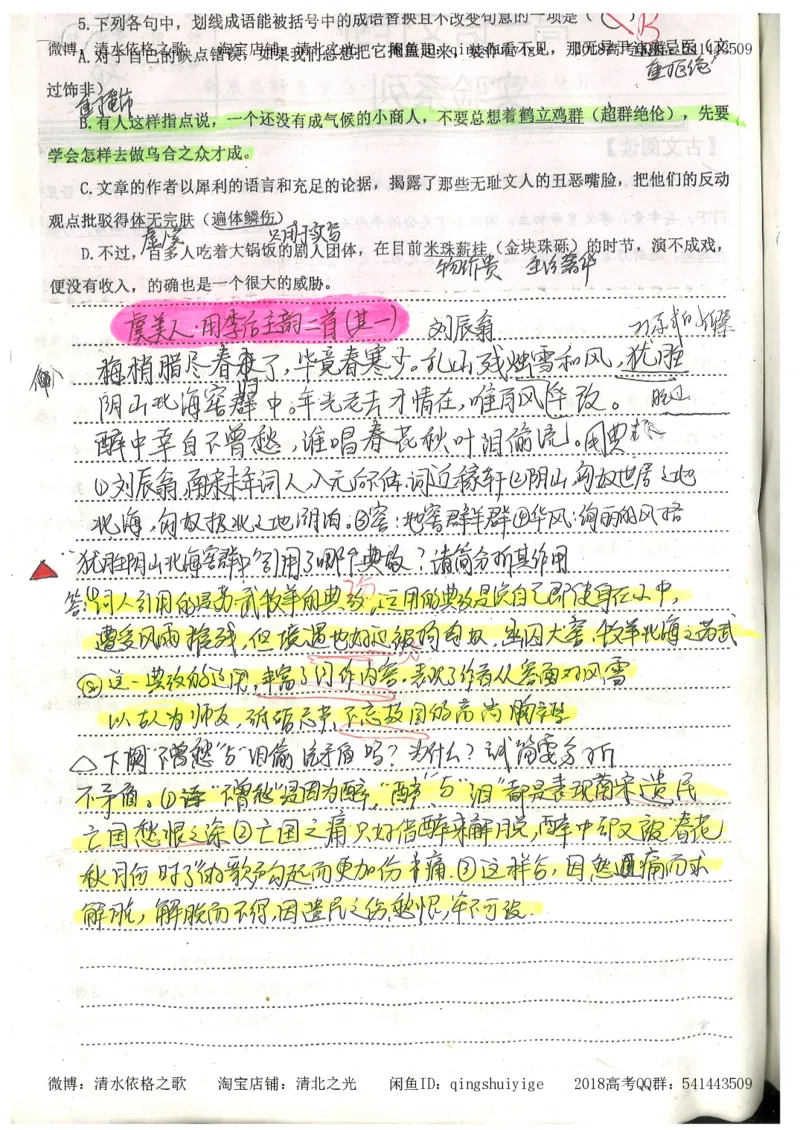 5.下列各句中，划线成语能被括号中的成语替换且不改变句意的一项是（ ）
B
微博：清水依格之歌 淘宝店铺：清北之光 闲鱼ID：qingshuiyige 2018高考QQ群：541443509
A.对于自己的缺点错误，如果我们总想把它掩盖起来，装作看不见，那无异于讳疾忌医（文
过饰非）
B.有人这样指点说，一个还没有成气候的小商人，不要总想着鹤立鸡群（超群绝伦），先要
学会怎样去做乌合之众才成。
C.文章的作者以犀利的语言和充足的论据，揭露了那些无耻文人的丑恶嘴脸，把他们的反动
观点批驳得体无完肤（遍体鳞伤）
只用于实写
D.不过，百多人吃着大锅饭的剧人团体，在目前米珠薪桂（金块珠砾）的时节，演不成戏，
物价贵 生活奢华
便没有收入，的确也是一个很大的威胁。
虞美人·用李后主韵二首(其一) 刘辰翁
梅梢腊尽春归了，毕竟春寒少。乱山残烛雪和风，犹胜
阴山北海窖群中。年光老去才情在，唯有风华改。
醉中幸自不曾愁，谁唱春花秋叶泪偷流。用典
①刘辰翁，南宋末年词人，入元不仕，词近稼轩②阴山，匈奴世居之地
北海，匈奴极北之地湖泊。③窖：地窖群羊群④华风：绚丽的风格
"犹胜阴山北海窖群中"引用了哪个典故？请简分析其作用
答①词人引用的是苏武牧羊的典故，运用的典故是说自己即使身在山中，
遭受风雨摧残，但境遇也好过被拘匈奴，幽囚大窖，牧羊北海之苏武
②这一典故的运用，丰富了词作内容，表现了作者从容面对风雪
以古人为师友，砥砺忠贞，不忘故国的高尚胸襟
△下阕"不曾愁"与"泪偷流"矛盾吗？为什么？试简要分析
不矛盾。①谓"不曾愁"是因为醉，"醉"与"泪"都是表现南宋遗民
亡国愁恨之深②亡国之痛只好借醉来解脱，醉中却又被"春花
秋月何时了"的歌声勾起而更加伤事痛.③这样写，因愁痛而求
解脱，解脱而不得，因遗民之伤愁恨，牢不可破.
微博：清水依格之歌 淘宝店铺：清北之光 闲鱼ID：qingshuiyige 2018高考QQ群：541443509